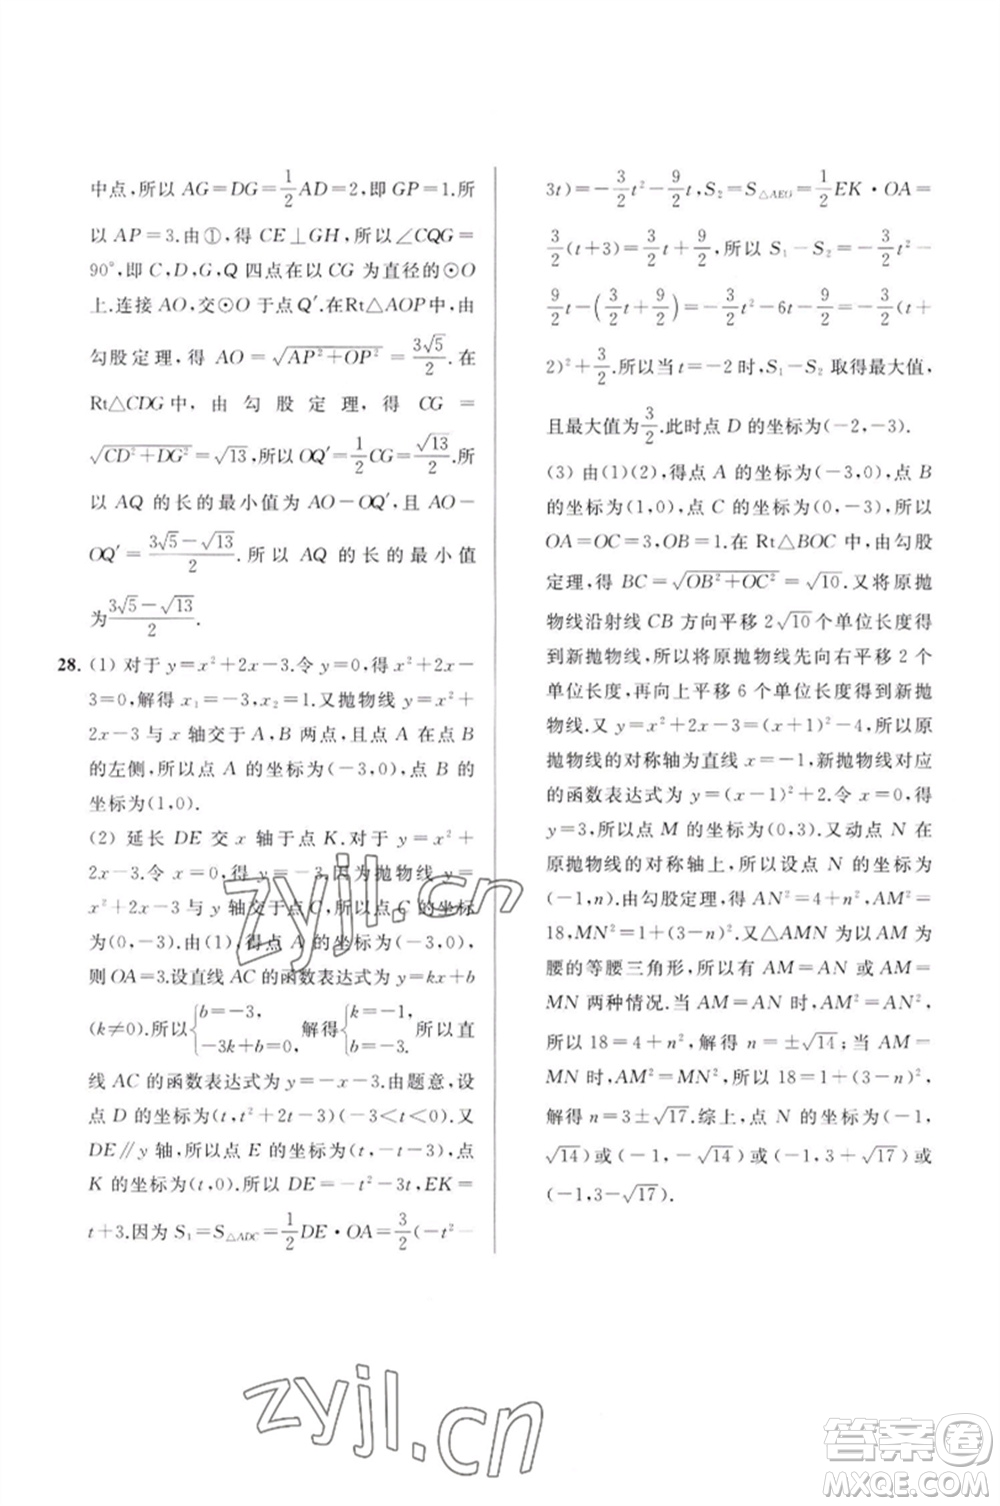 中点,所以 AG=DG=1/2AD=2,即 GP=1.所
以 AP=3.由①,得 CE⊥GH,所以∠CQG=
90°,即 C,D,G,Q 四点在以 CG 为直径的⊙O
上.连接 AO,交⊙O 于点 Q′.在Rt△AOP中,由
勾股定理,得 AO=√(AP²+OP²)=3√5/2.在
Rt△CDG中,由勾股定理,得 CG=
√(CD²+DG²)=√13,所以 OQ′=1/2CG=√13/2.所
以 AQ 的长的最小值为 AO-OQ′,且 AO-
OQ′=(3√5-√13)/2.所以 AQ 的长的最小值
为(3√5-√13)/2.
28. (1) 对于 y=x²+2x-3.令 y=0,得 x²+2x-
3=0,解得 x₁=-3,x₂=1.又抛物线 y=x²+
2x-3 与 x 轴交于 A,B 两点,且点 A 在点 B
的左侧,所以点 A 的坐标为(-3,0),点 B 的
坐标为(1,0).
(2) 延长 DE 交 x 轴于点 K.对于 y=x²+
2x-3.令 x=0,得 y=-3.因为抛物线 y=
x²+2x-3 与 y 轴交于点 C,所以点 C 的坐标
为(0,-3).由(1),得点 A 的坐标为(-3,0),
则 OA=3.设直线 AC 的函数表达式为 y=kx+b
(k≠0).所以{b=-3, -3k+b=0. 解得{k=-1, b=-3. 所以直
线 AC 的函数表达式为 y=-x-3.由题意,设
点 D 的坐标为(t,t²+2t-3)(-3<t<0).又
DE∥y 轴,所以点 E 的坐标为(t,-t-3),点
K 的坐标为(t,0).所以 DE=-t²-3t,EK=
t+3.因为 S₁=S△ADC=1/2DE·OA=3/2(-t²-
3t)=-3/2t²-9/2t,S₂=S△AEO=1/2EK·OA=
3/2(t+3)=3/2t+9/2,所以 S₁-S₂=-3/2t²-
9/2t-(3/2t+9/2)=-3/2t²-6t-9/2=-3/2(t+
2)²+3/2.所以当 t=-2 时,S₁-S₂ 取得最大值,
且最大值为3/2.此时点 D 的坐标为(-2,-3).
(3) 由(1)(2),得点 A 的坐标为(-3,0),点 B
的坐标为(1,0),点 C 的坐标为(0,-3),所以
OA=OC=3,OB=1.在 Rt△BOC 中,由勾股
定理,得 BC=√(OB²+OC²)=√10.又将原抛
物线沿射线 CB 方向平移 2√10个单位长度得
到新抛物线,所以将原抛物线先向右平移 2 个
单位长度,再向上平移 6 个单位长度得到新抛
物线.又 y=x²+2x-3=(x+1)²-4,所以原
抛物线的对称轴为直线 x=-1,新抛物线对应
的函数表达式为 y=(x-1)²+2.令 x=0,得
y=3.所以点 M 的坐标为(0,3).又动点 N 在
原抛物线的对称轴上,所以设点 N 的坐标为
(-1,n).由勾股定理,得 AN²=4+n²,AM²=
18,MN²=1+(3-n)².又△AMN 为以 AM 为
腰的等腰三角形,所以有 AM=AN 或 AM=
MN 两种情况.当 AM=AN 时,AM²=AN²,
所以 18=4+n²,解得 n=±√14;当 AM=
MN 时,AM²=MN²,所以 18=1+(3-n)²,
解得 n=3±√17.综上,点 N 的坐标为(-1,
√14)或(-1,-√14)或(-1,3+√17)或
(-1,3-√17).
zyjl.cn
zyjl.cn
答案卷
MXQE.COM